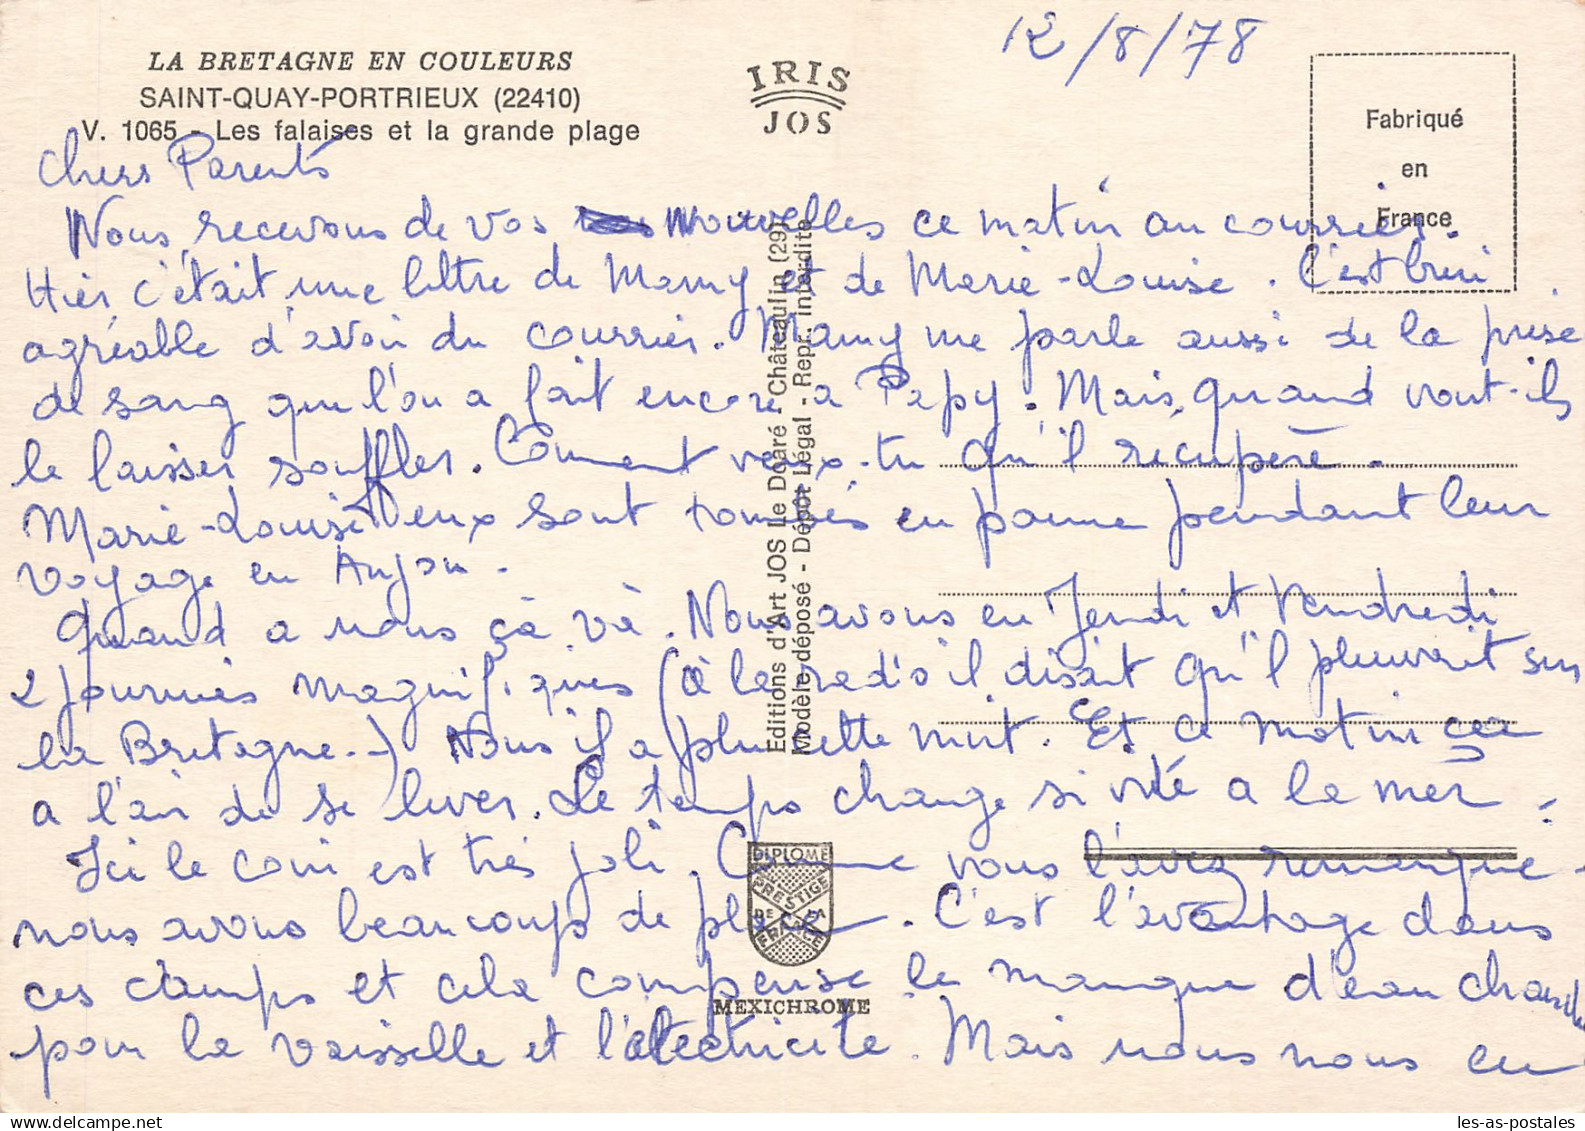 12/8/78
LA BRETAGNE EN COULEURS
SAINT-QUAY-PORTRIEUX (22410)
V. 1065 - Les falaises et la grande plage
IRIS
JOS
Fabriqué
en
France
Chers Parents
Nous recevons de vos nouvelles ce matin au courrier.
Hier c'était une lettre de Mamy et de Marie-Louise. C'est bien
agréable d'avoir du courrier. Mamy me parle aussi de la prise
de sang que l'on a fait encore a Papy. Mais quand vont-ils
le laisser souffler. Coment veux-tu qu'il récupère.
Marie-Louise eux sont tombés en panne pendant leur
voyage en Anjou.
Quand a nous çà và. Nous avons eu Jeudi et Vendredi
2 journées magnifiques (à la radio il disait qu'il pleuvait sur
la Bretagne..) Nous il a plu cette nuit. Et ce matin
a l'air de se lever. Le temps change si vite a la mer.
Ici le coin est très joli. Comme vous l'avez remarqué
nous avons beaucoup de place. C'est l'avantage dans
ces camps et cela compense le manque d'eau chaude
pour la vaisselle et l'électricite. Mais nous nous en
Editions d'Art JOS Le Doaré - Châteaulin (29)
Modèle déposé - Dépôt Légal - Repr. interdite
DIPLOME
PRESTIGE
DE LA
FRANCE
MEXICHROME
les-as-postales